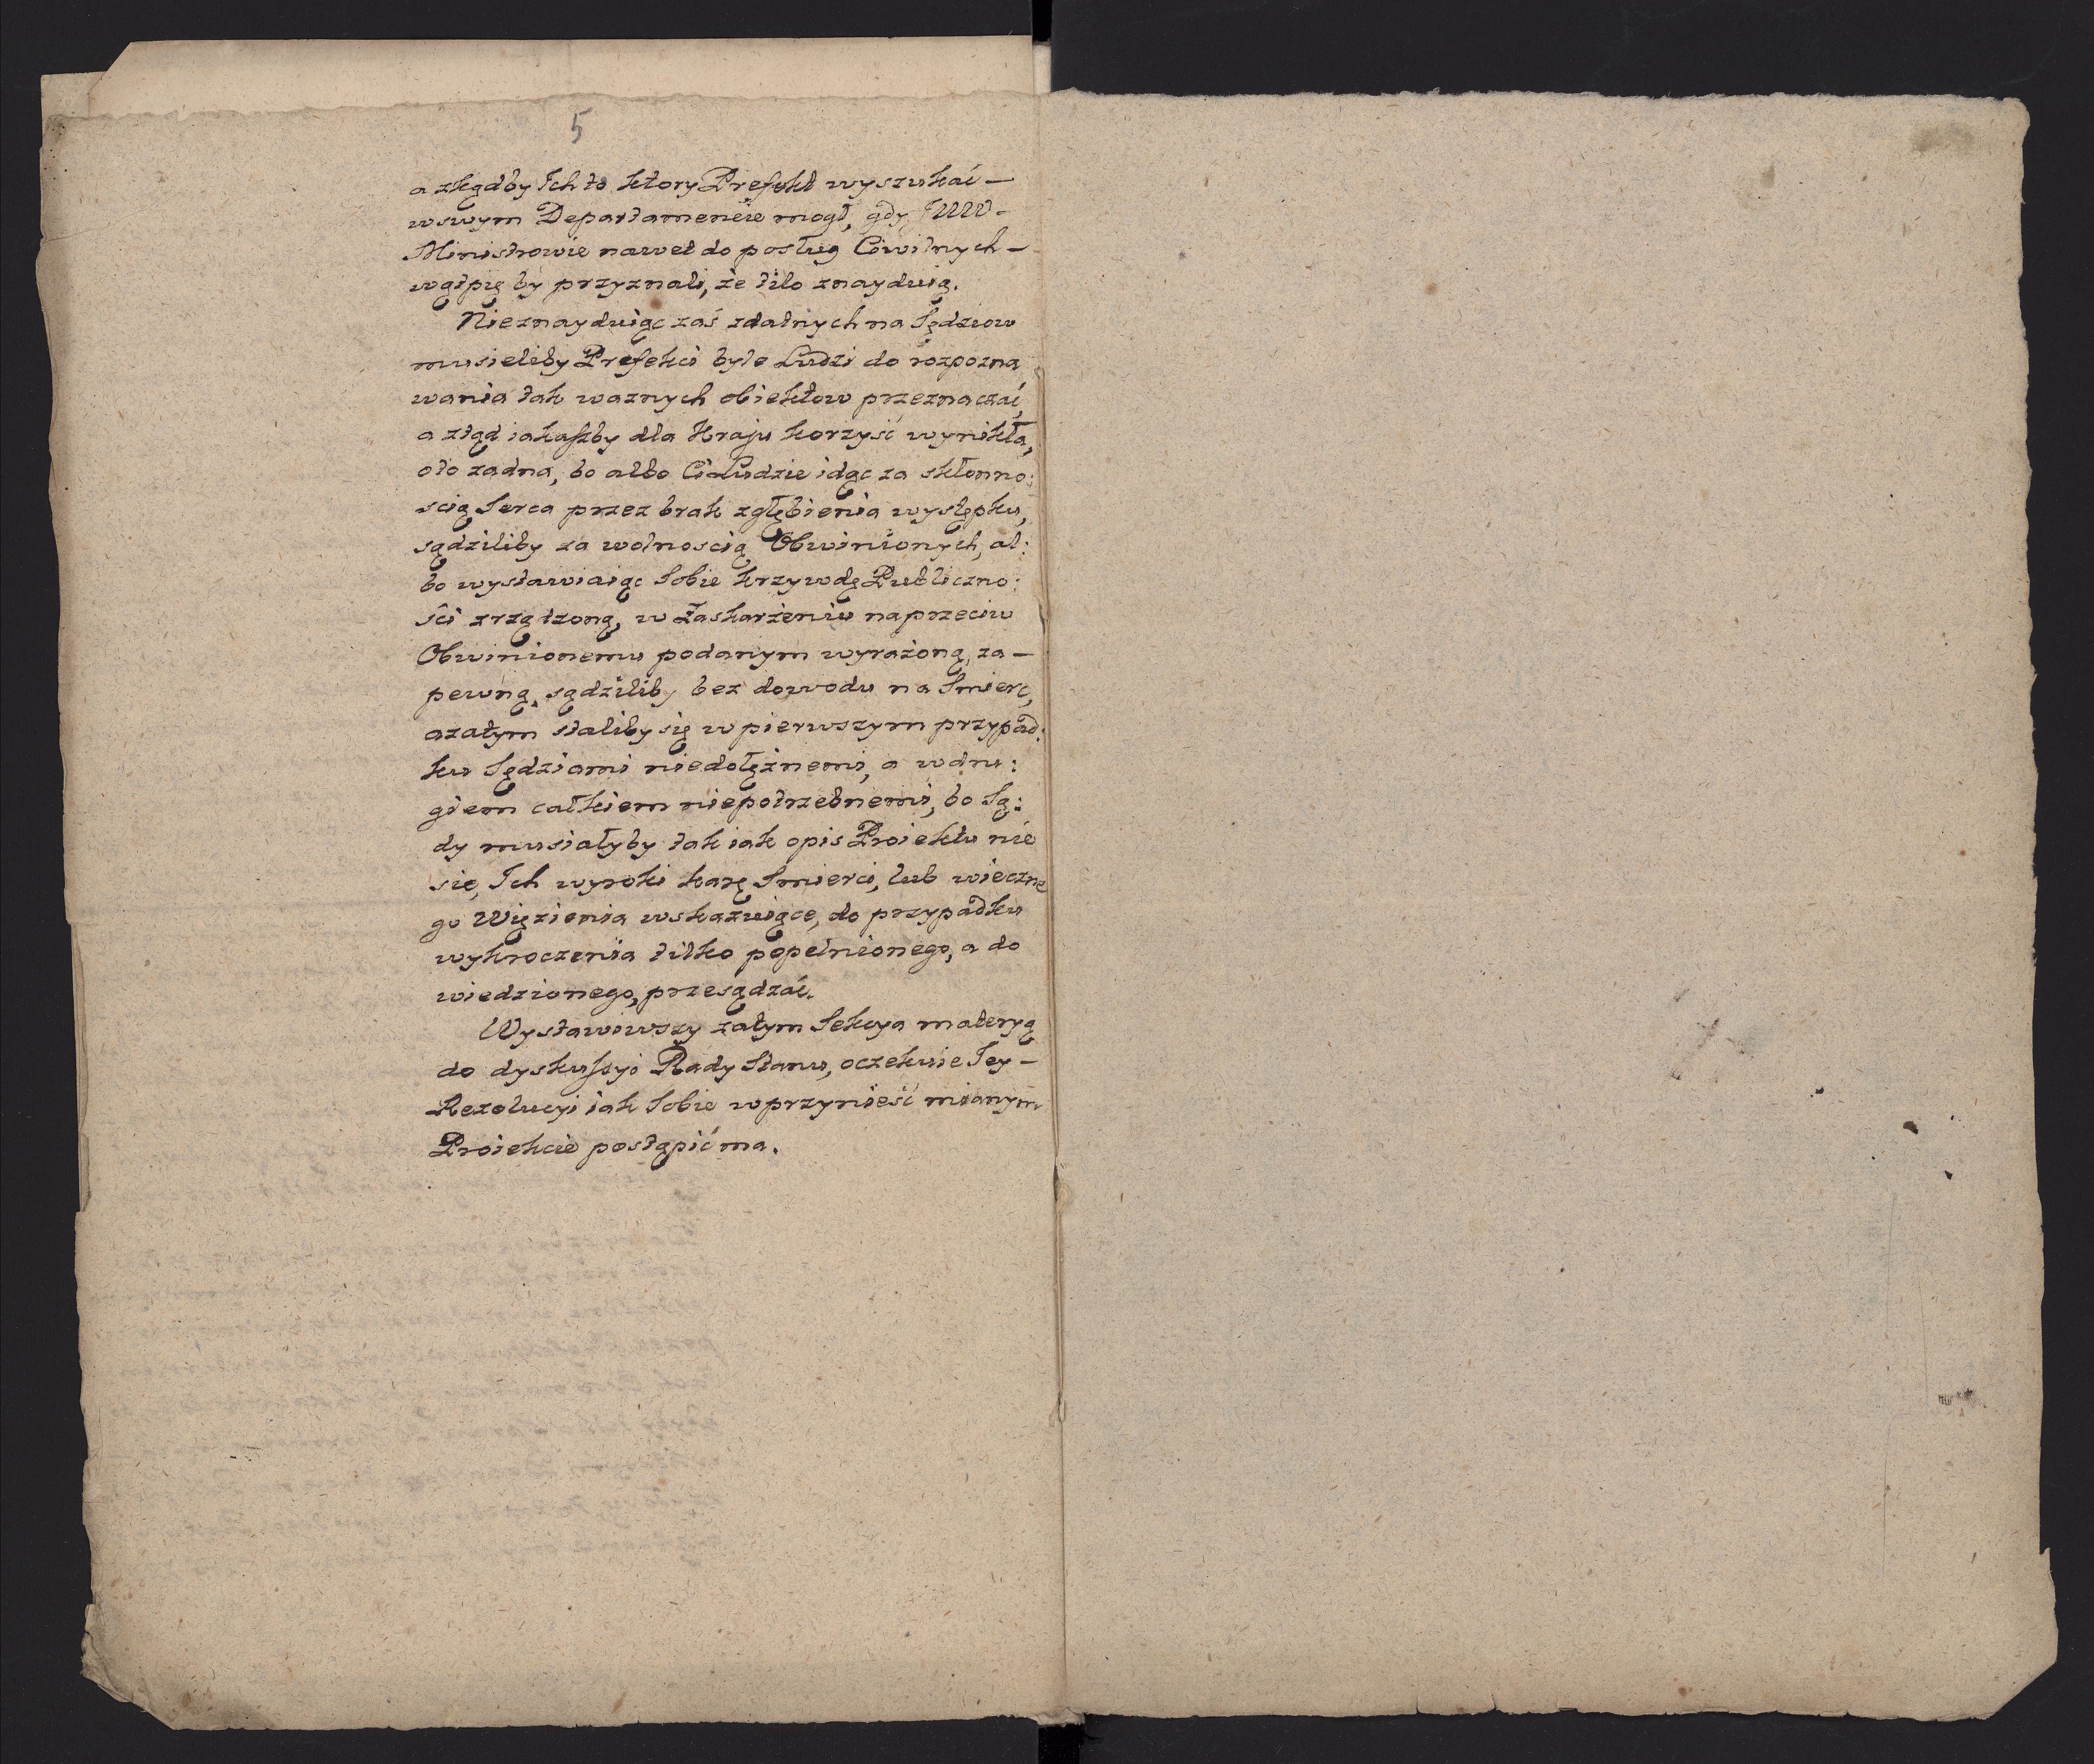 5
a zkądby Ich to ktory Prefekt wyszukać —
w swym Departamencie mogł, gdy JWW -
Ministrowie nawet do posług Ciwilnych —
wątpię by przyznali, że tilo znayduią.
Nieznayduiąc zaś zdatnych na Sędziow
musieliby Prefekci byle Ludzi do rozpozna
wania tak waznych obiektow przeznaczać,
a ztąd iakaszby dla Kraju korzyść wynikła,
oto zadna, bo albo Ci Ludzie idąc za skłonno:
scią Serca przez brak zgłębienia występku,
sądziliby za wolnoscią Obwinionych, al:
bo wystawiaiąc Sobie krzywdę Publiczno:
ści zrządzoną, w Zaskarżeniu naprzeciw
Obwinionemu podanym wyrażoną, za —
pewną, sądziliby bez dowodu na Smierc,
azatym staliby się w pierwszym przypad:
ku Sędziami niedołężnemi, a w dru:
giem całkiem niepotrzebnemi, bo Są:
dy musiałyby tak iak opis Proiektu nie
sie, Ich wyroki karę Smierci, lub wieczne
go Więzienia wskazuiące, do przypadku
wykroczenia tilko popełnionego, a do
wiedzionego, przesądzać.
Wystawiwszy zatym Sekcya materyą
do dyskussyi Rady Stanu, oczekuie Jey —
Rezolucyi iak Sobie w przynieść mianym
Proiekcie postąpić ma.